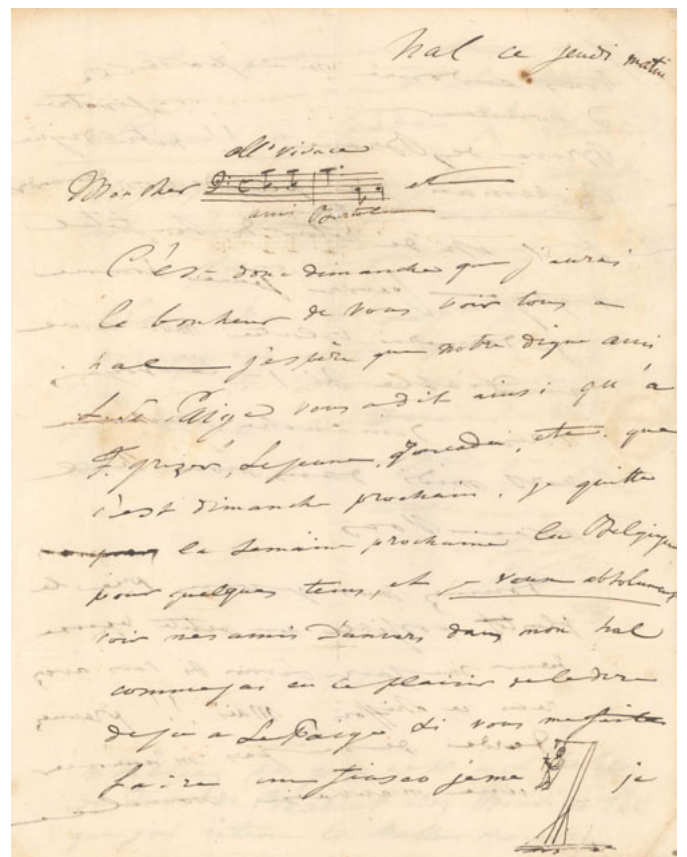 hal ce jeudi matin
all° vivace
Mon cher et
ami
C'est donc dimanche que j'aurai
le bonheur de vous voir tous a
hal j'espère que notre digne ami
vous a dit ainsi qu'à
Lejeune, etc. que
c'est dimanche prochain. je quitte
la semaine prochaine la Belgique
pour quelques tems, et je veux absolument
voir mes amis d'anvers dans mon hal
comme j'ai eu ce plaisir de le dire
deja a si vous me
faire un fiasco je me je